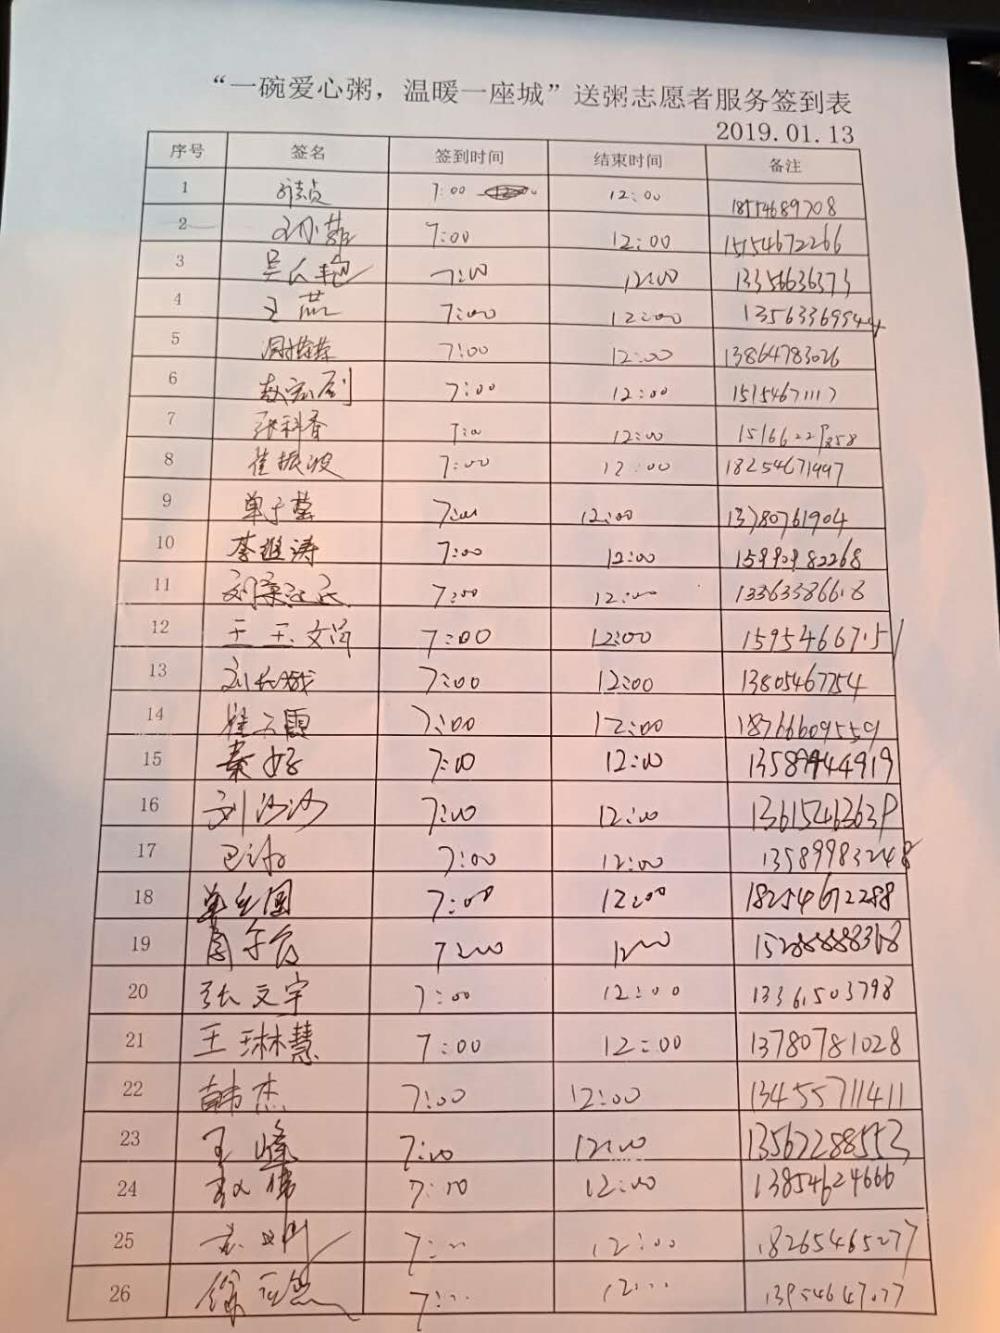 “一碗爱心粥，温暖一座城”送粥志愿者服务签到表
2019.01.13
序号 签名 签到时间 结束时间 备注
1 7:00 12:00 18554689708
2 7:00 12:00 15154672266
3 7:00 12:00 13356636373
4 王燕 7:00 12:00 13563369944
5 7:00 12:00 13864783026
6 7:00 12:00 15154671117
7 张科香 7:00 12:00
8 崔振波 7:00 12:00 18254671997
9 单于莹 7:00 12:00 13780761904
10 李继涛 7:00 12:00 15990982268
11 7:00 12:00
12 7:00 12:00
13 刘长城 7:00 12:00 13805467754
14 7:00 12:00 18766609559
15 秦好 7:00 12:00 13589944919
16 刘沙沙 7:00 12:00 13615463639
17 7:00 12:00 13589983248
18 7:00 12:00 18254672288
19 7:00 12:00 15288888368
20 张文宇 7:00 12:00 13361503798
21 王琳慧 7:00 12:00 13780781028
22 韩杰 7:00 12:00 13455711411
23 王峰 7:00 12:00 13567288553
24 7:00 12:00 13854624666
25 7:00 12:00 18265465277
26 7:00 12:00